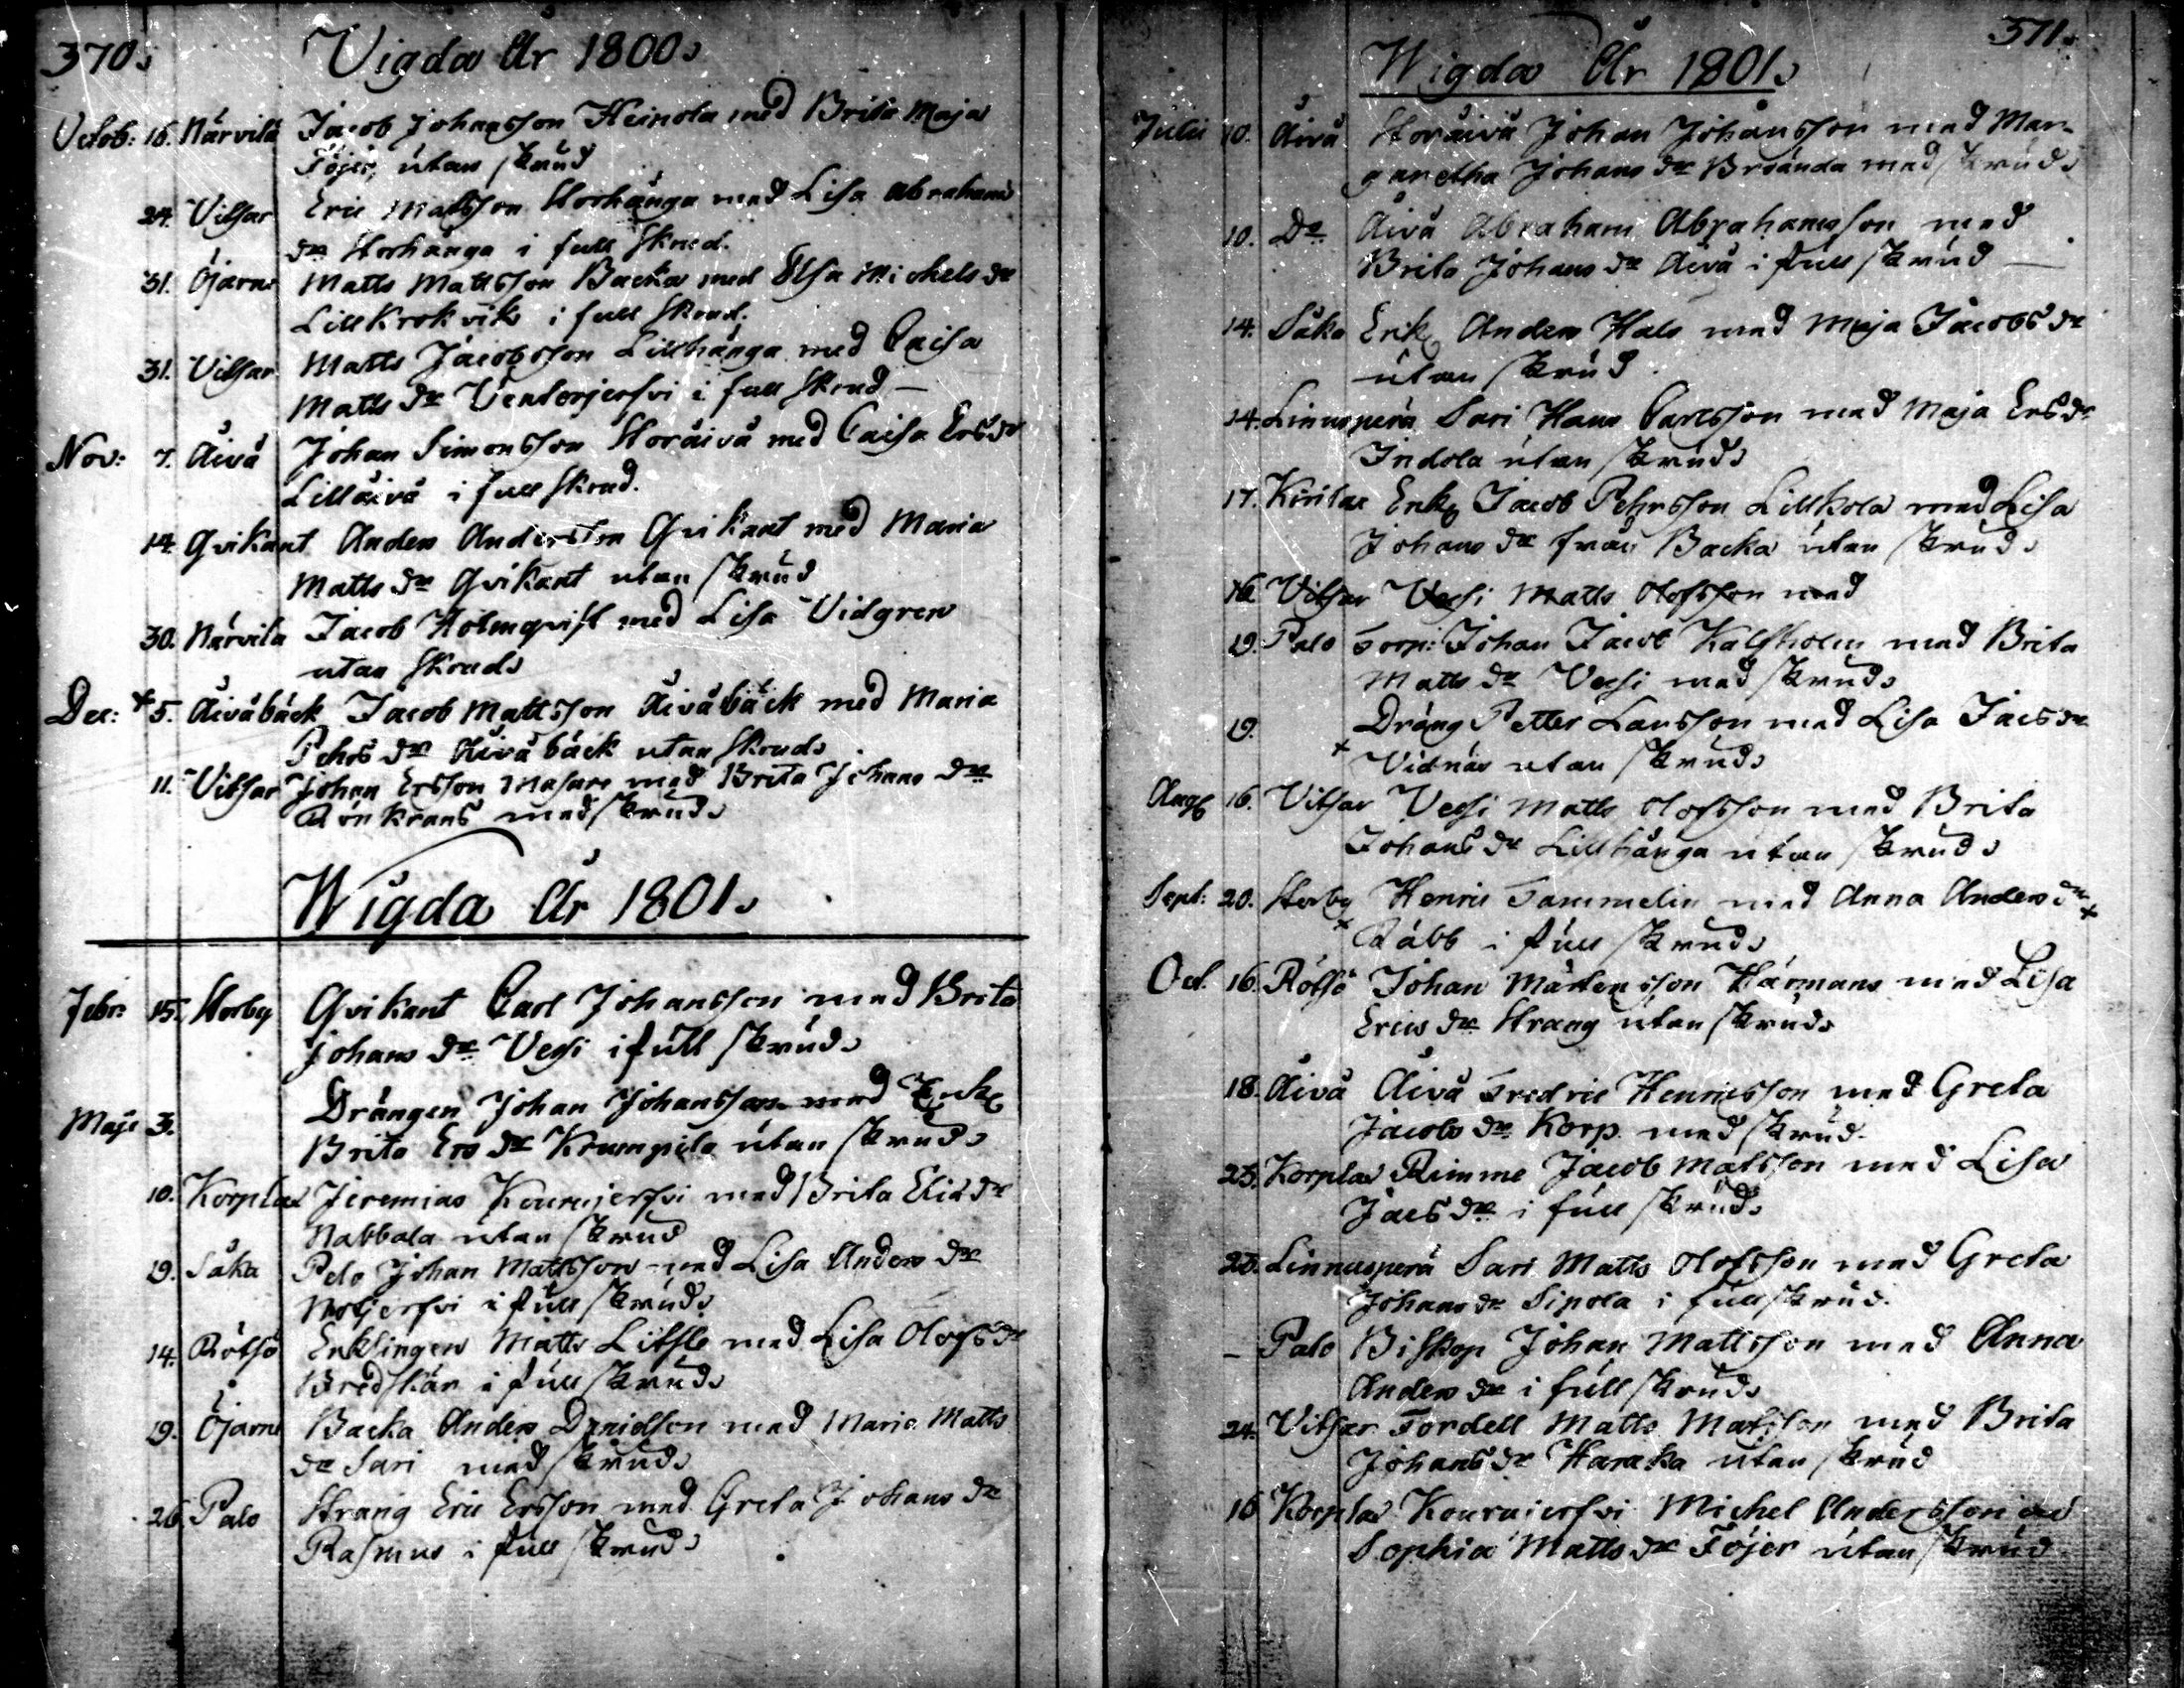 370.
Vigda År 1800.
Octob: 16. Närvilä Jacob Johansson Heinola med Brita Maja
Föjer, utan skrud
24. Vitsar Eric Mattsson Storhånga med Lisa Abrahams
dr Storhånga i full skrud.
31. Öjarne Matts Mattsson Backa med Elsa Michels dr
Lill Krokvik i full skrud.
31. Vitsar Matts Jacobsson Lillhånga med Caisa
Matts dr Ventorjerfvi i full skrud
Nov: 7. Åivå Johan Simonsson Storåivå med Caisa Ersdr
Lillåivå i full skrud.
14. Qvikant Anders Andersson Qvikant med Maria
Matts dr Qvikant utan skrud
30. Närvilä Jacob Holmqvist med Lisa Vidgren
utan skrud.
Dec: + 5. Åivåbäck Jacob Mattsson Åivåbäck med Maria
Pehrs dr Åivåbäck utan skrud.
11. Vitsar Johan Ersson Masare med Brita Johans dr
Rönkrans med skrud.
Wigda År 1801.
Febr: 15. Storby Qvikant Carl Johansson med Brita
Johans dr Vessi i full skrud.
Maji 3. Drängen Johan Johansson med Enk
Brita Ers dr Krumpila utan skrud.
10. Korplax Jeremias Kourujerfvi med Brita Elias dr
Nabbala utan skrud
19. Såka Pelo Johan Mattsson med Lisa Anders dr
Mosjerfvi i full skrud.
14. Rötsö Enklingen Matts Litsle med Lisa Olofs dr
Bredskär i full skrud.
19. Öjarne Backa Anders Danielson med Maria Matts
dr Sari med skrud.
26. Palo Strang Eric Ersson med Greta Johans dr
Rasmus i full skrud.
371.
Wigda År 1801.
Julii 10. Åivå Storåivå Johan Johansson med Mar-
garetha Johans dr Broända med skrud.
10. Do Åivå Abraham Abrahamsson med
Brita Johans dr Åivå i full skrud
14. Såka Erik Anders Hals med Maja Jacobs dr
utan skrud.
14. Linnusperä Sari Hans Carlsson med Maja Ersdr
Indola utan skrud.
17. Kirilax Enk Jacob Pehrsson Lillkola med Lisa
Johans dr från Backa utan skrud.
16 Vitsar Vessi Matts Olofsson med
19. Palo Torp: Johan Jacob Kalfholm med Brita
Matts dr Vessi med skrud.
19. Dräng Petter Larsson med Lisa Jacsdr
+ Vidnäs utan skrud.
Aug 16. Vitsar Vessi Matts Olofsson med Brita
Johans dr Lillhånga utan skrud.
Sept: 20. Storby Henric Tammelin med Anna Anders dr +
+ Räbb i full skrud.
Oct. 16. Rötsö Johan Mårtensson Härmans med Lisa
Erics dr Strang utan skrud.
18. Åivå Åivå Fredric Henricsson med Greta
Jacobs dr Korp. med skrud.
23. Korplax Rimme Jacob Matsson med Lisa
Jacs dr i full skrud.
23. Linnusperä Sari Matts Olofsson med Greta
Johans dr Sipola i full skrud.
_ Palo Biskop Johan Mattsson med Anna
Anders dr i full skrud.
24. Vitsar Tordell Matts Matsson med Brita
Johans dr Haraka utan skrud
16 Korplax Kourujerfvi Michel Andersson med
Sophia Matts dr Föjer utan skrud